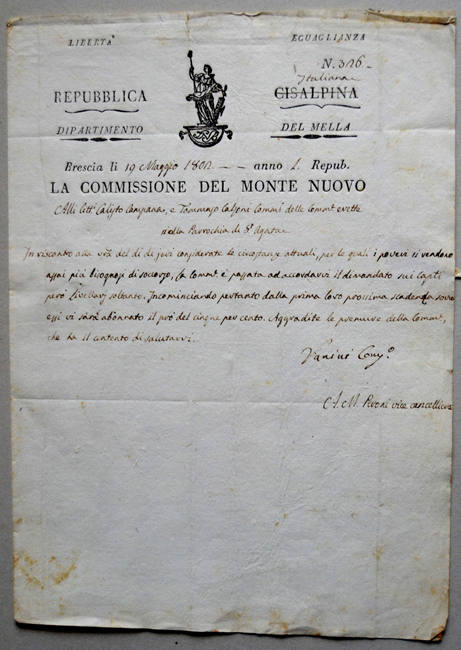 LIBERTA' EGUAGLIANZA
N. 316
Italiana
REPUBBLICA CISALPINA
DIPARTIMENTO DEL MELLA
Brescia li 19 Maggio 1802 — anno I. Repub.
LA COMMISSIONE DEL MONTE NUOVO
Alli Citt. Calisto Campana, e Tommaso Comm. delle Comm. erette
nella Parrochia di S. Agata
In riscontro alla vra del dì di jeri considerate le circostanze attuali, per le quali i poveri si rendono
assai più bisognosi di soccorso, la Comm. è passata ad accordarvi il dimandato sui Capit.
però livellarj soltanto. Incominciando pertanto dalla prima loro prossima scadenza sovra
essi vi sarà abbonato il prò del cinque per cento. Aggradite le premure della Comm.,
che ha il contento di salutarvi.
C. M. Peroni vice cancelliere